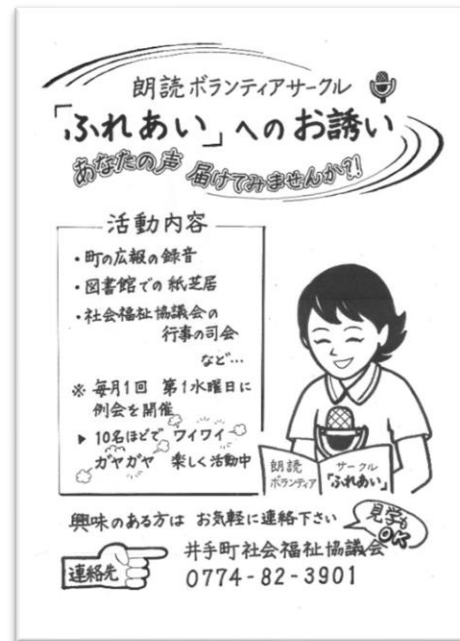 朗読ボランティアサークル
「ふれあい」へのお誘い
あなたの声 届けてみませんか?!
活動内容
・町の広報の録音
・図書館での紙芝居
・社会福祉協議会の
行事の司会
など…
※ 毎月1回 第1水曜日に
例会を開催
▶ 10名ほどで ワイワイ
ガヤガヤ 楽しく活動中
朗読
ボランティア
サークル
「ふれあい」
興味のある方は お気軽に連絡下さい
見学も
OK
連絡先
井手町社会福祉協議会
0774-82-3901